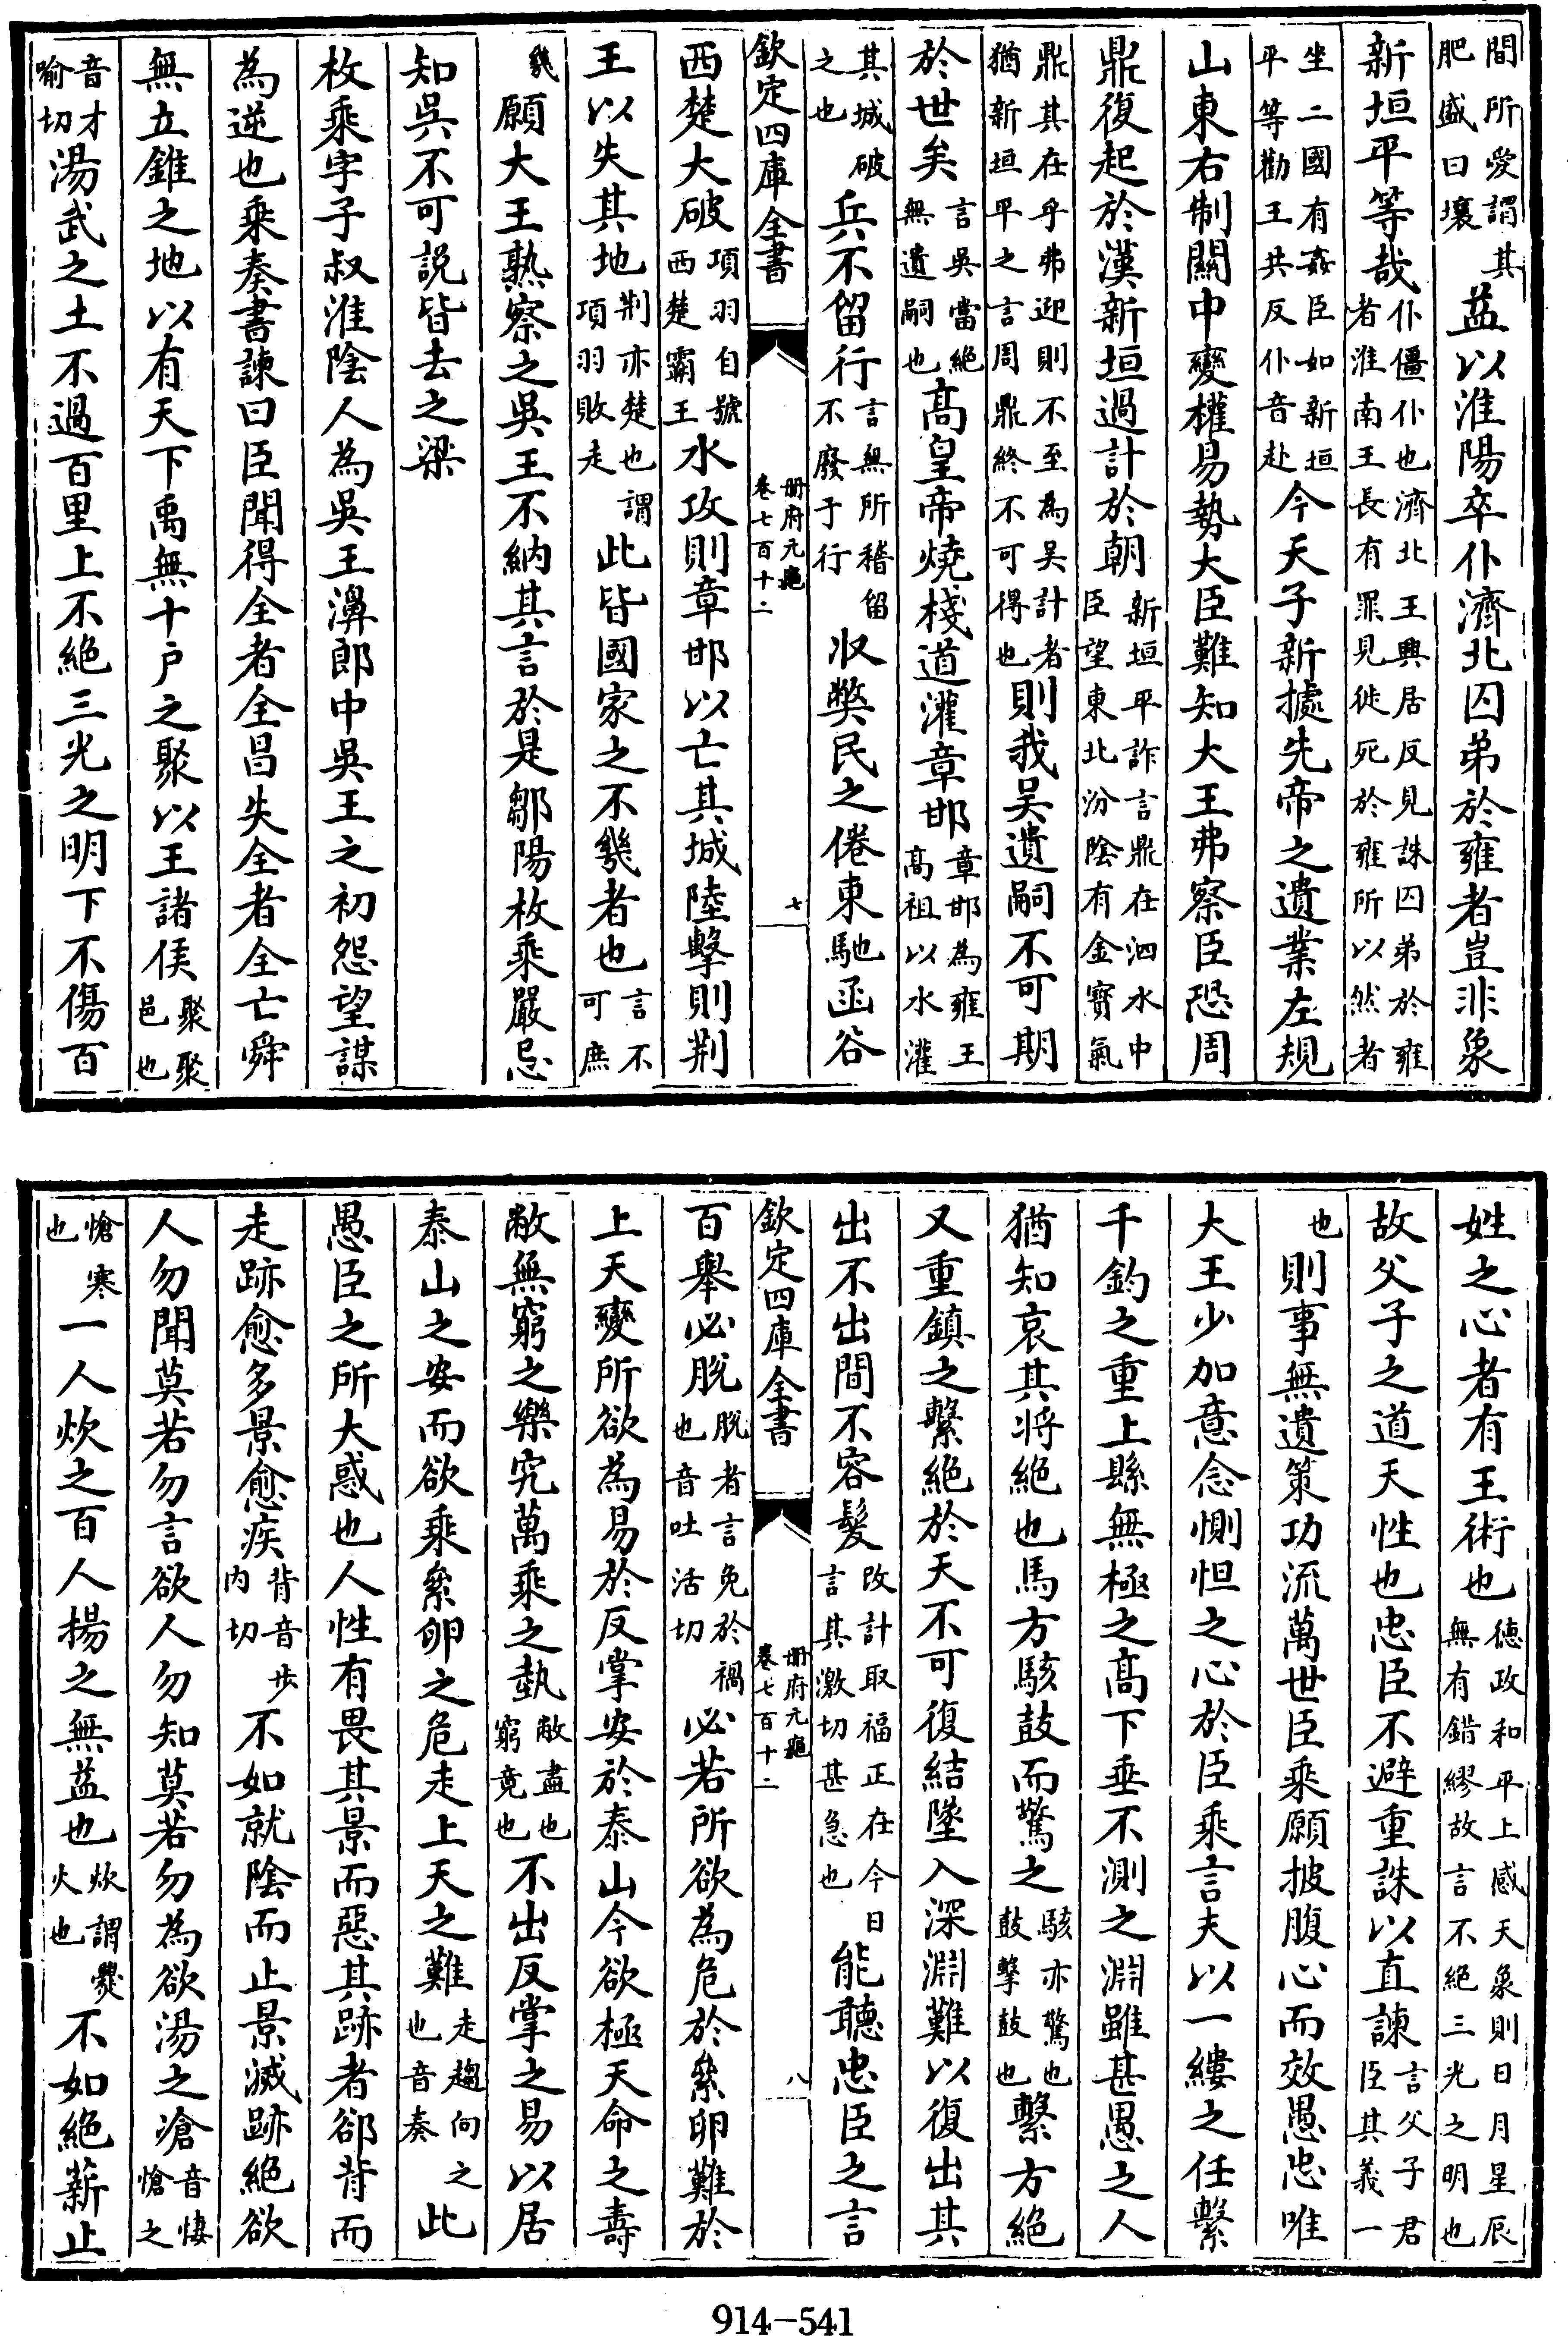 間所愛謂其肥盛曰壤益以淮陽卒仆濟北囚弟於雍者豈非象
新垣平等哉仆僵仆也濟北王興居反見誅囚弟於雍者淮南王長有罪見徙死於雍所以然者
坐二國有姦臣如新垣平等勸王共反仆音赴今天子新㨿先帝之遺業左規
山東右制關中變權易勢大臣難知大王弗察臣恐周
鼎復起於漢新垣過計於朝新垣平詐言鼎在泗水中臣望東北汾陰有金寳氣
鼎其在乎弗迎則不至為吴計者猶新垣平之言周鼎終不可得也則我吴遺嗣不可期
於世矣言吳當絶無遺嗣也高皇帝燒棧道灌章邯章邯為雍王高祖以水灌
其城破之也兵不留行言無所稽留不廢于行收弊民之倦東馳函谷
欽定四庫全書
册府元龜
卷七百十二
七
西楚大破項羽自號西楚霸王水攻則章邯以亡其城陸擊則荆
王以失其地荆亦楚也謂項羽敗走此皆國家之不幾者也言不可庶
幾願大王熟察之吳王不納其言於是鄒陽枚乗嚴忌
知吳不可説皆去之梁
枚乗字子叔淮陰人為吳王濞郎中吳王之初怨望謀
為逆也乗奏書諫曰臣聞得全者全昌失全者全亡舜
無立錐之地以有天下禹無十户之聚以王諸侯聚聚邑也
音才喻切湯武之土不過百里上不絶三光之明下不傷百
姓之心者有王術也德政和平上感天象則日月星辰無有錯繆故言不絶三光之明也
故父子之道天性也忠臣不避重誅以直諫言父子君臣其義一
也則事無遺策功流萬世臣乗願披腹心而效愚忠唯
大王少加意念惻怛之心於臣乗言夫以一縷之任繫
千鈞之重上縣無極之髙下垂不測之淵雖甚愚之人
猶知哀其將絶也馬方駭鼓而驚之駭亦驚也鼓擊鼓也繫方絶
又重鎮之繫絶於天不可復結墜入深淵難以復出其
出不出間不容髮改計取福正在今日言其激切甚急也能聽忠臣之言
欽定四庫全書
册府元龜
卷七百十二
八
百舉必脱脱者言免於禍也音吐活切必若所欲為危於絫卵難於
上天變所欲為易於反掌安於泰山今欲極天命之壽
敝無窮之樂究萬乗之埶敝盡也窮竟也不出反掌之易以居
泰山之安而欲乗絫卵之危走上天之難走趨向之也音奏此
愚臣之所大惑也人性有畏其景而惡其跡者郤背而
走跡愈多景愈疾背音步内切不如就陰而止景滅跡絶欲
人勿聞莫若勿言欲人勿知莫若勿為欲湯之凔音悽愴之
愴寒也一人炊之百人揚之無益也炊謂爨火也不如絶薪止
914-541